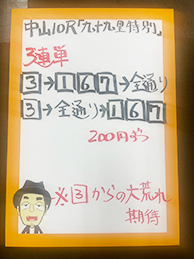 中山10R「九十九里特別」
3連単
3→1 6 7→全通り
3→全通り→1 6 7
200円ずつ
※3からの大荒れ
期待